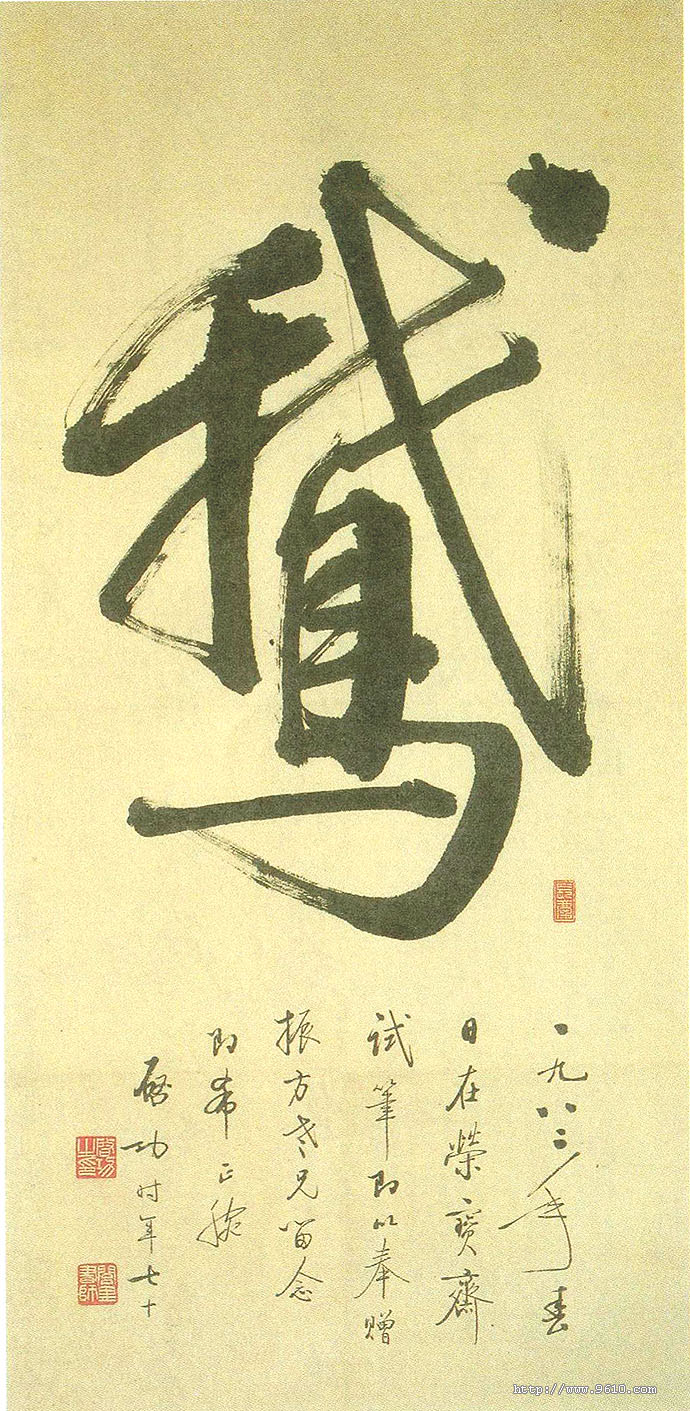 鵝
一九八二年春
日在榮寳齋
试筆即以奉赠
振方老兄留念
即希正腕
啓功时年七十
啓功之印
http://www.9610.com